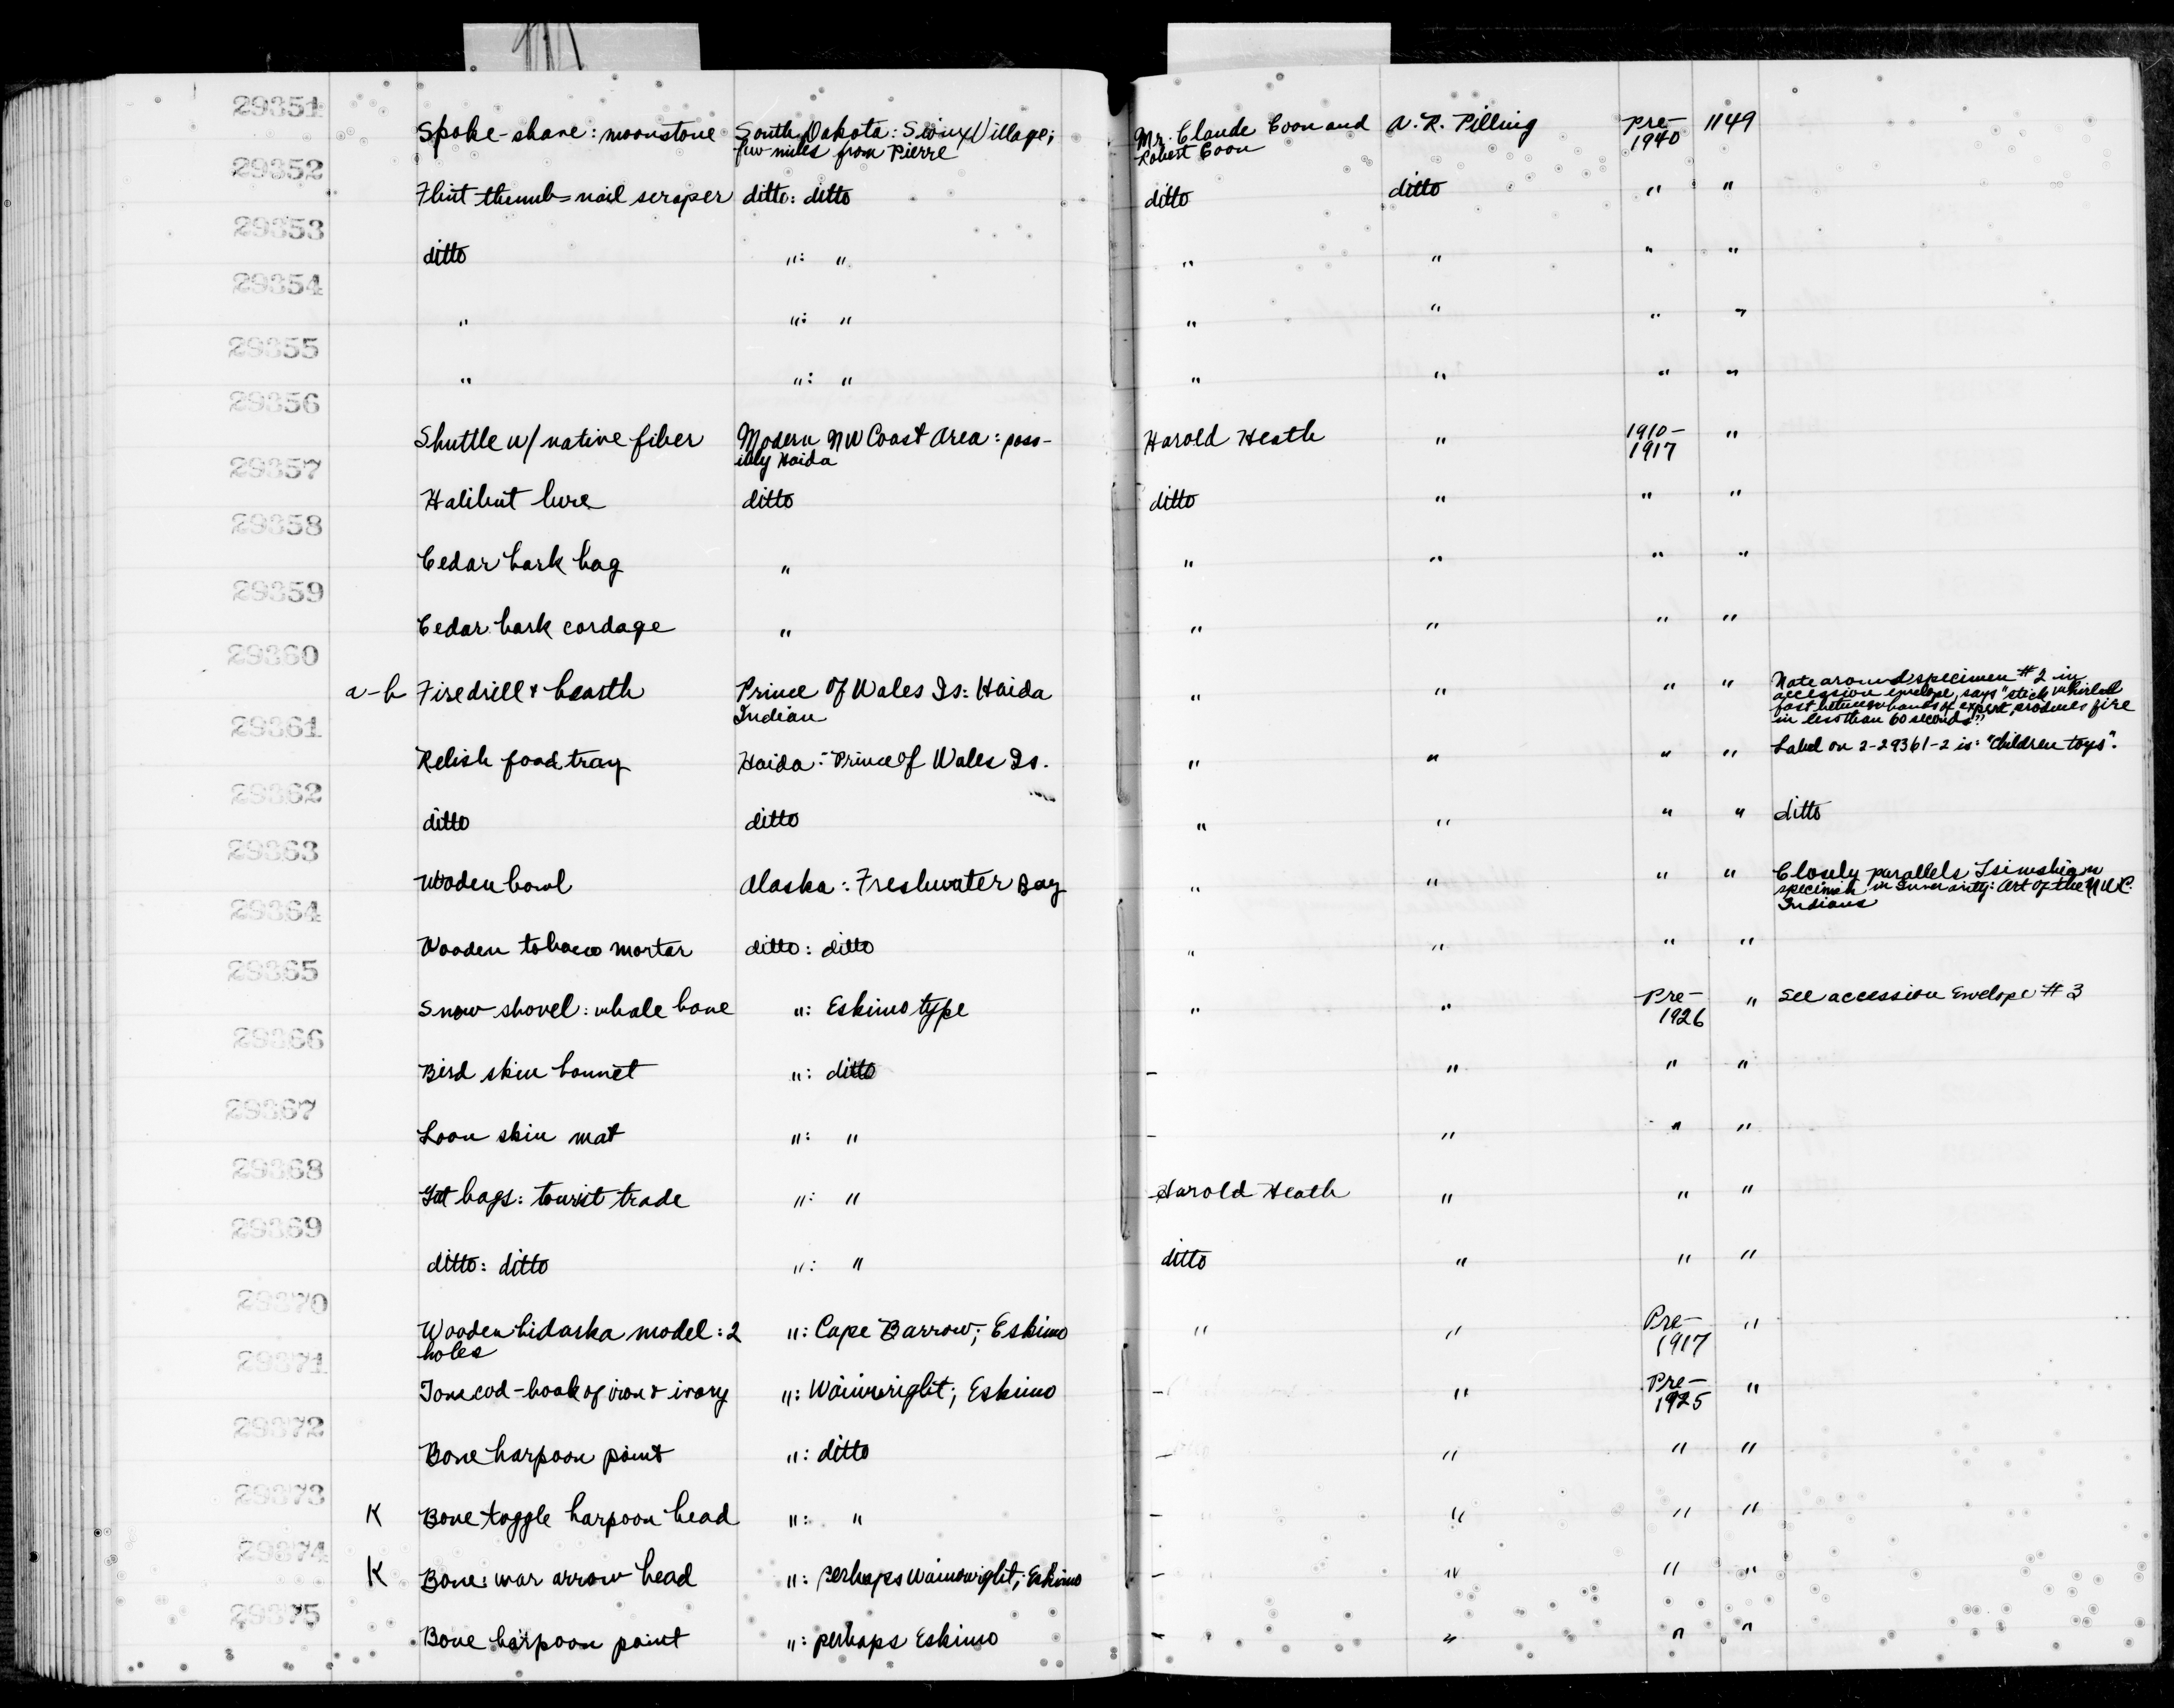 29351
Spoke-shave: moonstone South Dakota: Sioux Village; Mr. Claude Coon and A. R. Pilling Pre- 1149
few miles from Pierre Robert Coon 1940
29352
Flint thumb-nail scraper ditto: ditto ditto ditto " "
29353
ditto ": " " " " "
29354
" ": " " " " "
29355
" ": " " " " "
29356
Shuttle w/ native fiber Modern NW Coast Area: poss- Harold Heath " 1910- "
ibly Haida 1917
29357
Halibut lure ditto ditto " " "
29358
Cedar bark bag " " " " "
29359
Cedar bark cordage " " " " "
29360
a-b Fire drill & hearth Prince Of Wales Is: Haida " " " " Note around specimen #2 in
Indian accession envelope, says "stick whirled
fast between hands of expert, produces fire
in less than 60 seconds"
29361
Relish food tray Haida: Prince of Wales Is. " " " " Label on 2-29361-2 is: "Children toys".
29362
ditto ditto " " " " ditto
29363
Wooden bowl Alaska: Freshwater Bay " " " " Closely parallels Tsimshian
specimen in Inverarity: Art of the NWC
Indians
29364
Wooden tobacco mortar ditto: ditto " " " "
29365
Snow shovel: whale bone ": Eskimo type " " Pre- " See accession Envelope #3
1926
29366
Bird skin bonnet ": ditto - " " "
29367
Loon skin mat ": " - " " "
29368
Gut bags: tourist trade ": " Harold Heath " " "
29369
ditto: ditto ": " ditto " " "
29370
Wooden bidarka model: 2 ": Cape Barrow; Eskimo " " Pre- "
holes 1917
29371
Tomcod-hook of iron & ivory ": Wainwright; Eskimo - " Pre- "
1925
29372
Bone harpoon point ": ditto - " " "
29373
K Bone toggle harpoon head ": " - " " "
29374
K Bone: war arrow head ": perhaps Wainwright; Eskimo - " " "
29375
Bone harpoon point ": perhaps Eskimo - " " "